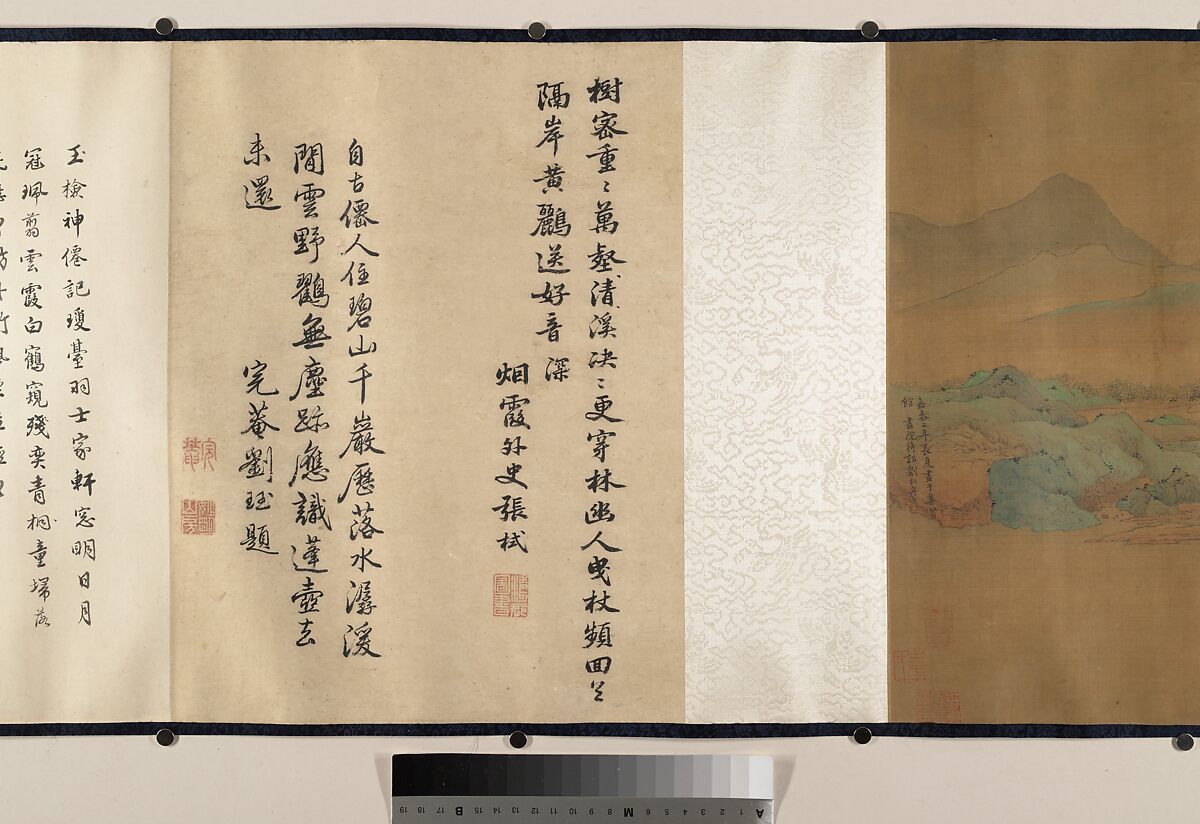 嘉泰二年長夏畫于集芳
館 畫院待詔劉松年
樹密重〻萬壑清溪决〻更穿林幽人曳杖頻回首
隔岸黃鸝送好音 深
烟霞外史張栻
自古僊人住碧山千巖歷落水潺湲
閒雲野鸛無塵跡應識蓬壺去
未還 完菴劉珏題
玉檢神僊記瓊臺羽士家軒窓明日月
冠珮翦雲霞白鶴窺殘奕青桐童埽落
A 1 2 3 4 5 6 M 8 9 10 11 12 13 14 15 B 17 18 19